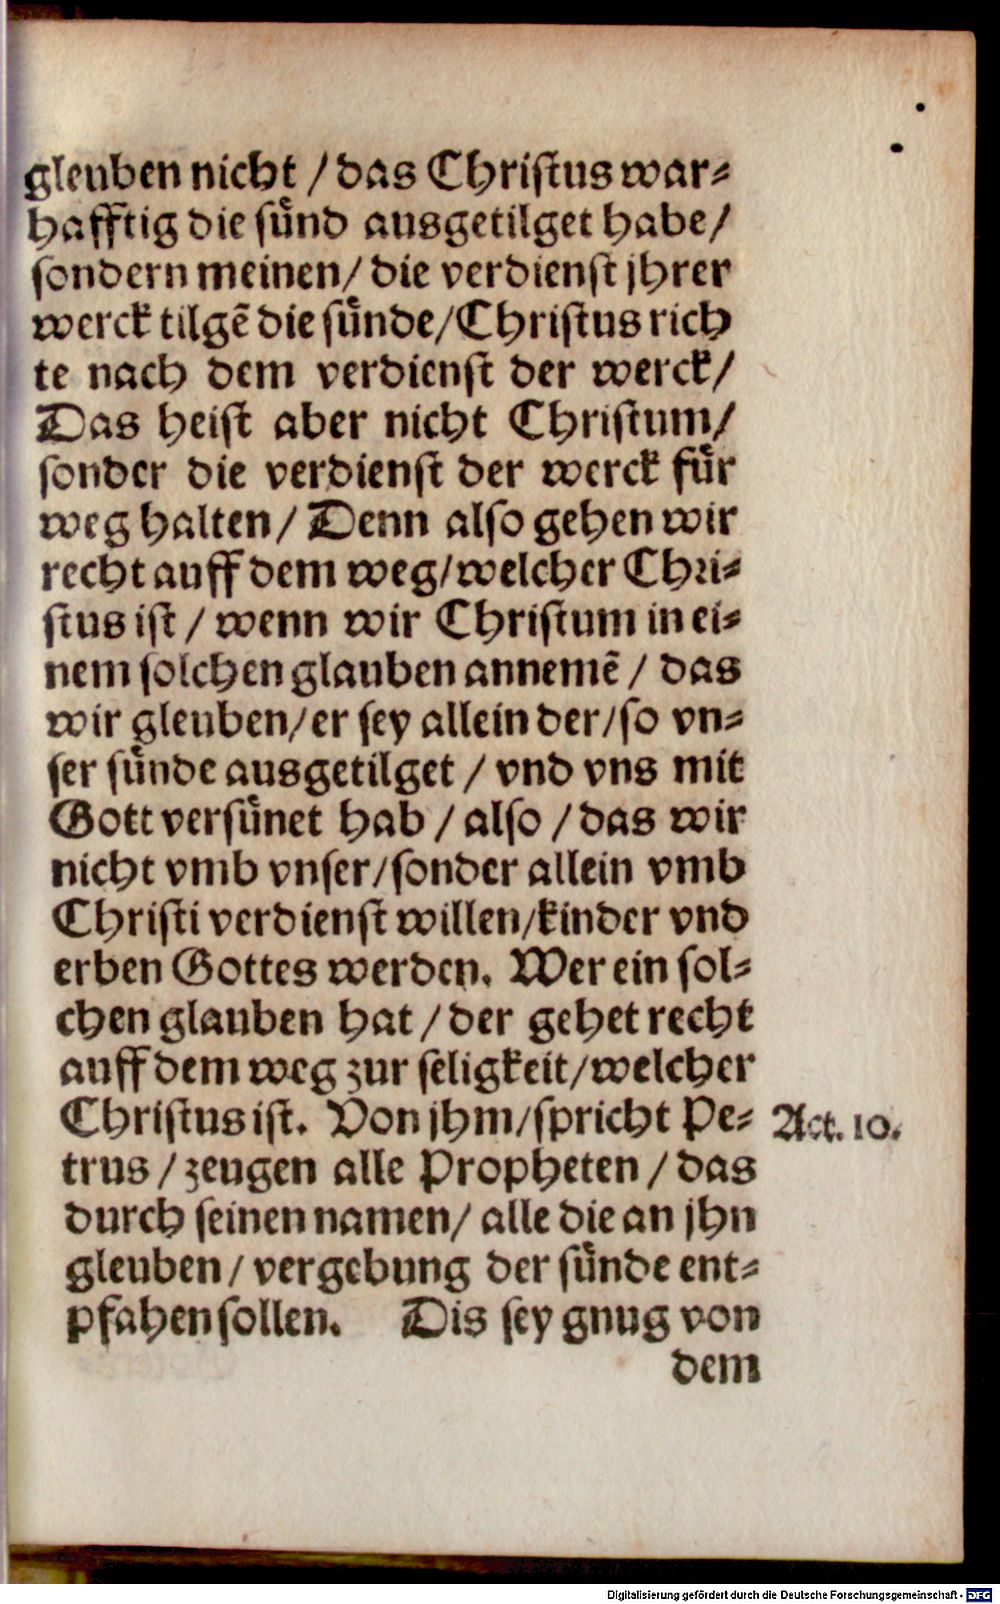 gleuben nicht / das Christus war⸗
hafftig die sünd ausgetilget habe /
sondern meinen / die verdienst jhrer
werck tilgẽ die sünde / Christus rich
te nach dem verdienst der werck /
Das heist aber nicht Christum /
sonder die verdienst der werck für
weg halten / Denn also gehen wir
recht auff dem weg / welcher Chri⸗
stus ist / wenn wir Christum in ei⸗
nem solchen glauben annemẽ / das
wir gleuben / er sey allein der / so vn⸗
ser sünde ausgetilget / vnd vns mit
Gott versünet hab / also / das wir
nicht vmb vnser / sonder allein vmb
Christi verdienst willen / kinder vnd
erben Gottes werden. Wer ein sol⸗
chen glauben hat / der gehet recht
auff dem weg zur seligkeit / welcher
Christus ist. Von jhm / spricht Pe⸗ Act. 10.
trus / zeugen alle Propheten / das
durch seinen namen / alle die an jhn
gleuben / vergebung der sünde ent⸗
pfahen sollen. Dis sey gnug von
dem
Digitalisierung gefördert durch die Deutsche Forschungsgemeinschaft - DFG